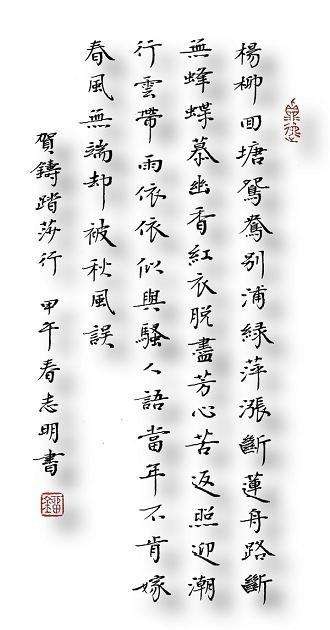 楊柳回塘鴛鴦別浦綠萍漲斷蓮舟路斷
無蜂蝶慕幽香紅衣脫盡芳心苦返照迎潮
行雲帶雨依依似與騷人語當年不肯嫁
春風無端却被秋風誤
賀鑄踏莎行 甲午春志明書